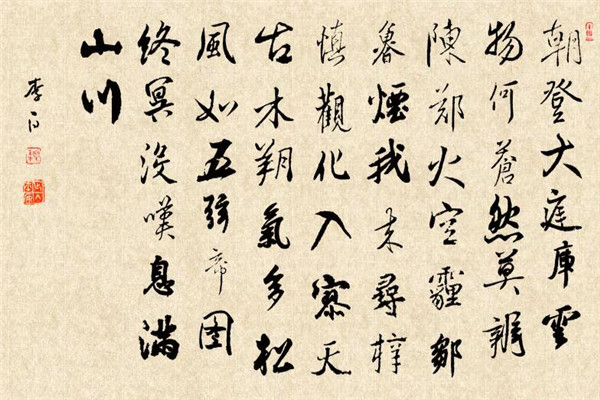 朝登大庭庫雲
物何蒼然莫辨
陳郑火空霾鄒
魯煙我来尋梓
慎觀化入寥天
古木朔氣多松
風如五弦帝图
終冥没嘆息满
山川
李白